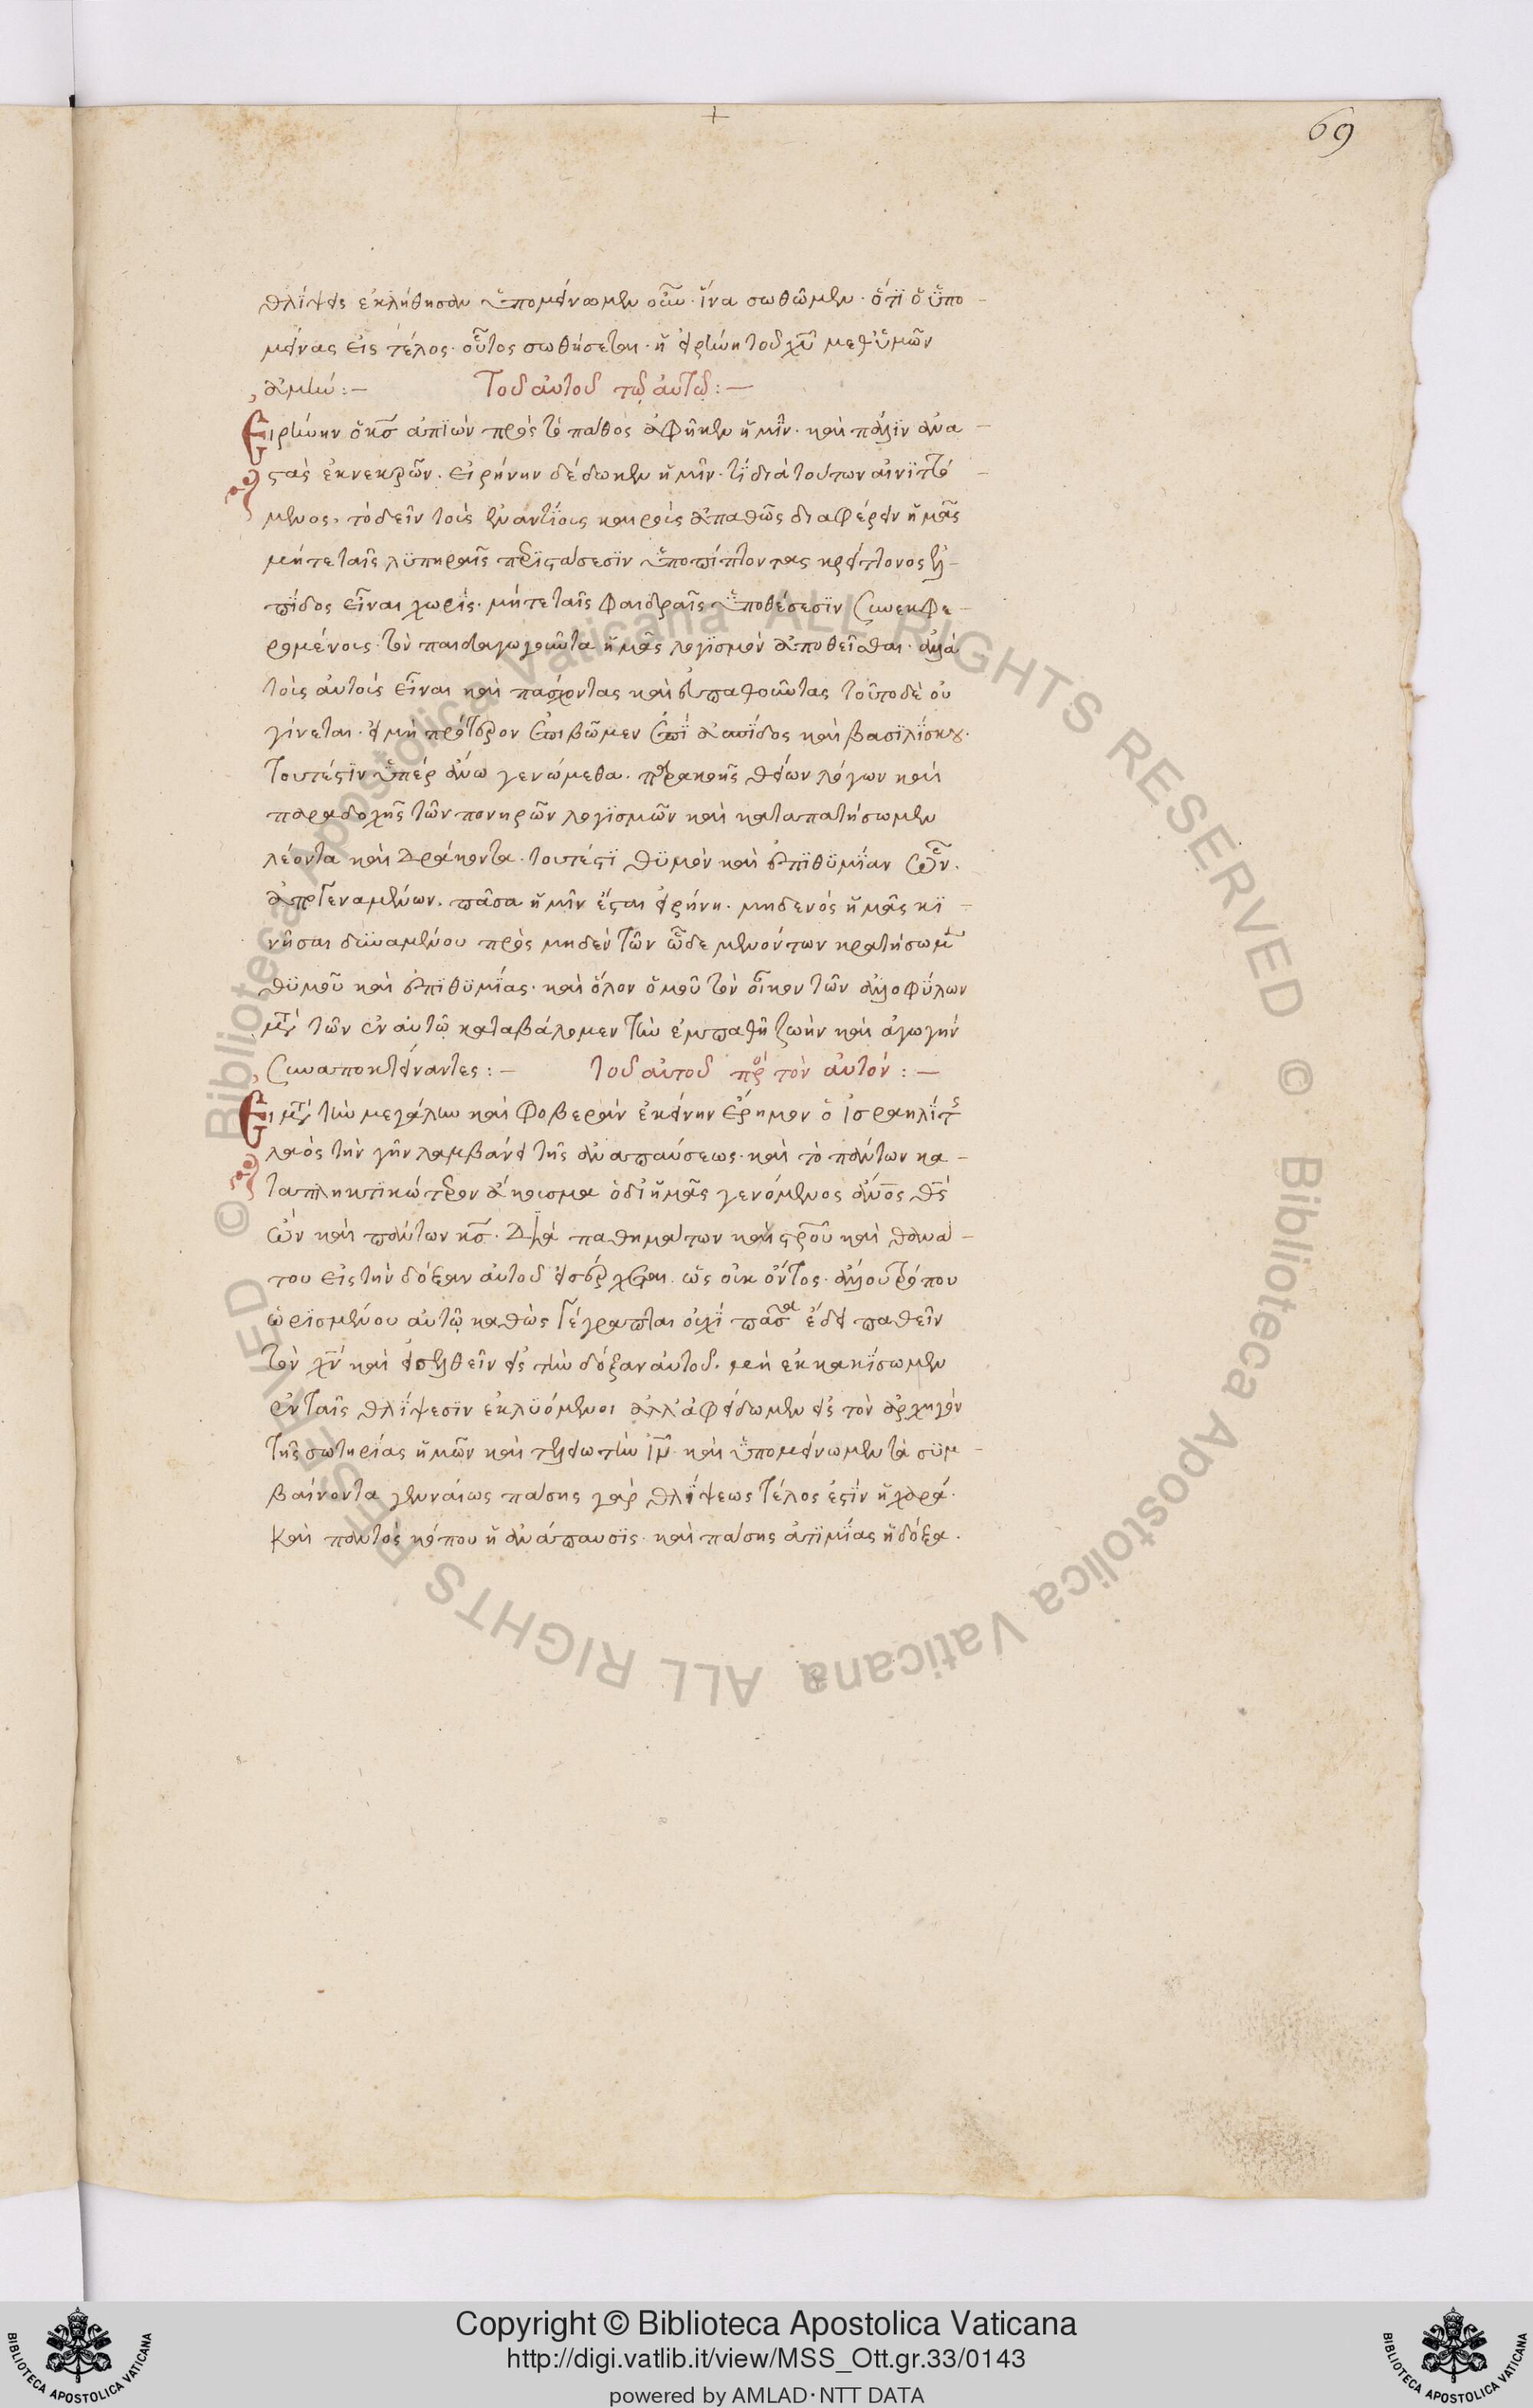 69
θλίψεις ἐκλήθησαν ὑπομείνωμεν οὖν· ἵνα σωθῶμεν· ὅτι ὁ ὑπο-
μείνας εἰς τέλος· οὗτος σωθήσεται· ἡ εἰρήνη τοῦ χυ μεθ' ὑμῶν
ἀμήν:— Τοῦ αὐτοῦ τῷ αὐτῷ:—
Εἰρήνην ὁ κς ἀπιὼν πρὸς τὸ πάθος ἀφῆκεν ἡμῖν· καὶ πάλιν ἀνα-
στὰς ἐκ νεκρῶν· εἰρήνην δέδωκεν ἡμῖν· τί διὰ τούτων αἰνιττό-
μενος, τὸ δεῖν τοῖς ἐναντίοις καιροῖς ἀπαθῶς διαφέρειν ἡμᾶς
μήτε ταῖς λυπηραῖς περιστάσεσιν ὑποπίπτοντας κρείττονος ἐλ-
πίδος εἶναι χωρίς· μήτε ταῖς φαιδραῖς ὑποθέσεσιν συνεκφε-
ρομένοις· τὸν παιδαγωγοῦντα ἡμᾶς λογισμὸν ἀποθεῖσθαι· ἀλλὰ
τοῖς αὐτοῖς εἶναι καὶ πάσχοντας καὶ εὐπαθοῦντας τοῦτο δὲ οὐ
γίνεται· εἰ μὴ πρότερον ἐπιβῶμεν ἐπὶ ἀσπίδος καὶ βασιλίσκου·
Τουτέστιν ὑπὲρ ἄνω γενώμεθα· παρακοῆς θείων λόγων καὶ
παραδοχῆς τῶν πονηρῶν λογισμῶν καὶ καταπατήσωμεν
λέοντα καὶ δράκοντα· τουτέστι θυμὸν καὶ ἐπιθυμίαν ὧν·
πᾶσα ἡμῖν ἔσται εἰρήνη· μηδενὸς ἡμᾶς κι-
νῆσαι δυναμένου πρὸς μηδὲν τῶν ὧδε μενόντων κρατήσωμεν
θυμοῦ καὶ ἐπιθυμίας· καὶ ὅλον ὁμοῦ τὸν οἶκον τῶν ἀλλοφύλων
μετὰ τῶν ἐν αὐτῷ καταβάλομεν τὴν ἐμπαθῆ ζωὴν καὶ ἀγωγήν
συναποκτείναντες:— τοῦ αὐτοῦ πρὸς τὸν αὐτόν:—
Εἰ μετὰ τὴν μεγάλην καὶ φοβερὰν ἐκείνην ἔρημον ὁ ἰσραηλίτης
λαὸς τὴν γῆν λαμβάνει τῆς ἀναπαύσεως· καὶ τὸ πάντων κα-
ταπληκτικώτερον ἄκουσμα ὁ δι' ἡμᾶς γενόμενος ἄνος θς
ὢν καὶ πάντων κς· διὰ παθημάτων καὶ στρου καὶ θανά-
του εἰς τὴν δόξαν αὐτοῦ εἰσέρχεται· ὡς οὐκ ὄντος· ἄλλου τρόπου
ὡρισμένου αὐτῷ καθὼς γέγραπται οὐχὶ ἔδει παθεῖν
τὸν χν καὶ εἰσελθεῖν εἰς τὴν δόξαν αὐτοῦ· μὴ ἐκκακίσωμεν
ἐν ταῖς θλίψεσιν ἐκλυόμενοι ἀλλ' ἀφείδωμεν εἰς τὸν ἀρχηγὸν
τῆς σωτηρίας ἡμῶν καὶ τελειωτὴν ιν· καὶ ὑπομείνωμεν τὰ συμ-
βαίνοντα γενναίως πάσης γὰρ θλίψεως τέλος ἐστὶν ἡ χαρά·
Καὶ παντὸς κόπου ἡ ἀνάπαυσις· καὶ πάσης ἀτιμίας ἡ δόξα·
© Biblioteca Apostolica Vaticana ALL RIGHTS RESERVED © Biblioteca Apostolica Vaticana ALL RIGHTS RESERVED
Copyright © Biblioteca Apostolica Vaticana
http://digi.vatlib.it/view/MSS_Ott.gr.33/0143
powered by AMLAD·NTT DATA
BIBLIOTECA APOSTOLICA VATICANA
BIBLIOTECA APOSTOLICA VATICANA